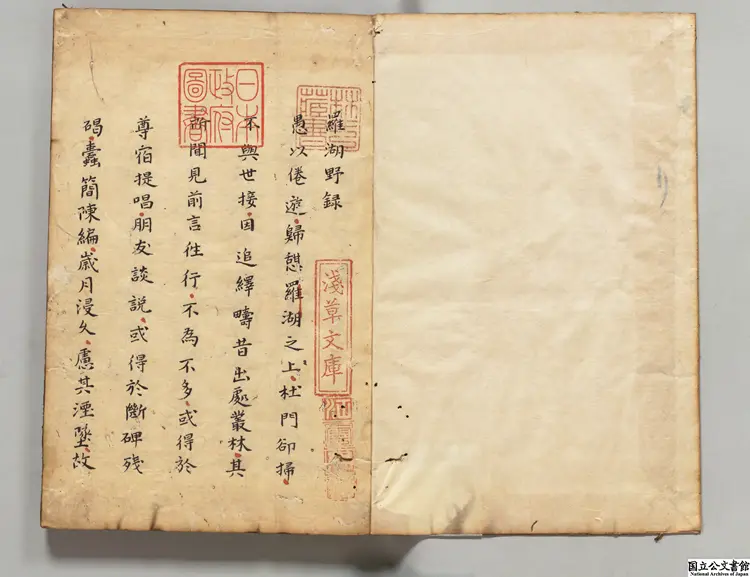 羅湖野録
愚以倦遊歸憇羅湖之上杜門卻掃
不與世接因追繹疇昔出處叢林其
所聞見前言往行不為不多或得於
尊宿提唱朋友談説或得於斷碑殘
碣蠹簡陳編歳月浸久慮其湮墜故
林氏藏書
日本政府圖書
淺草文庫
国立公文書館
National Archives of Japan